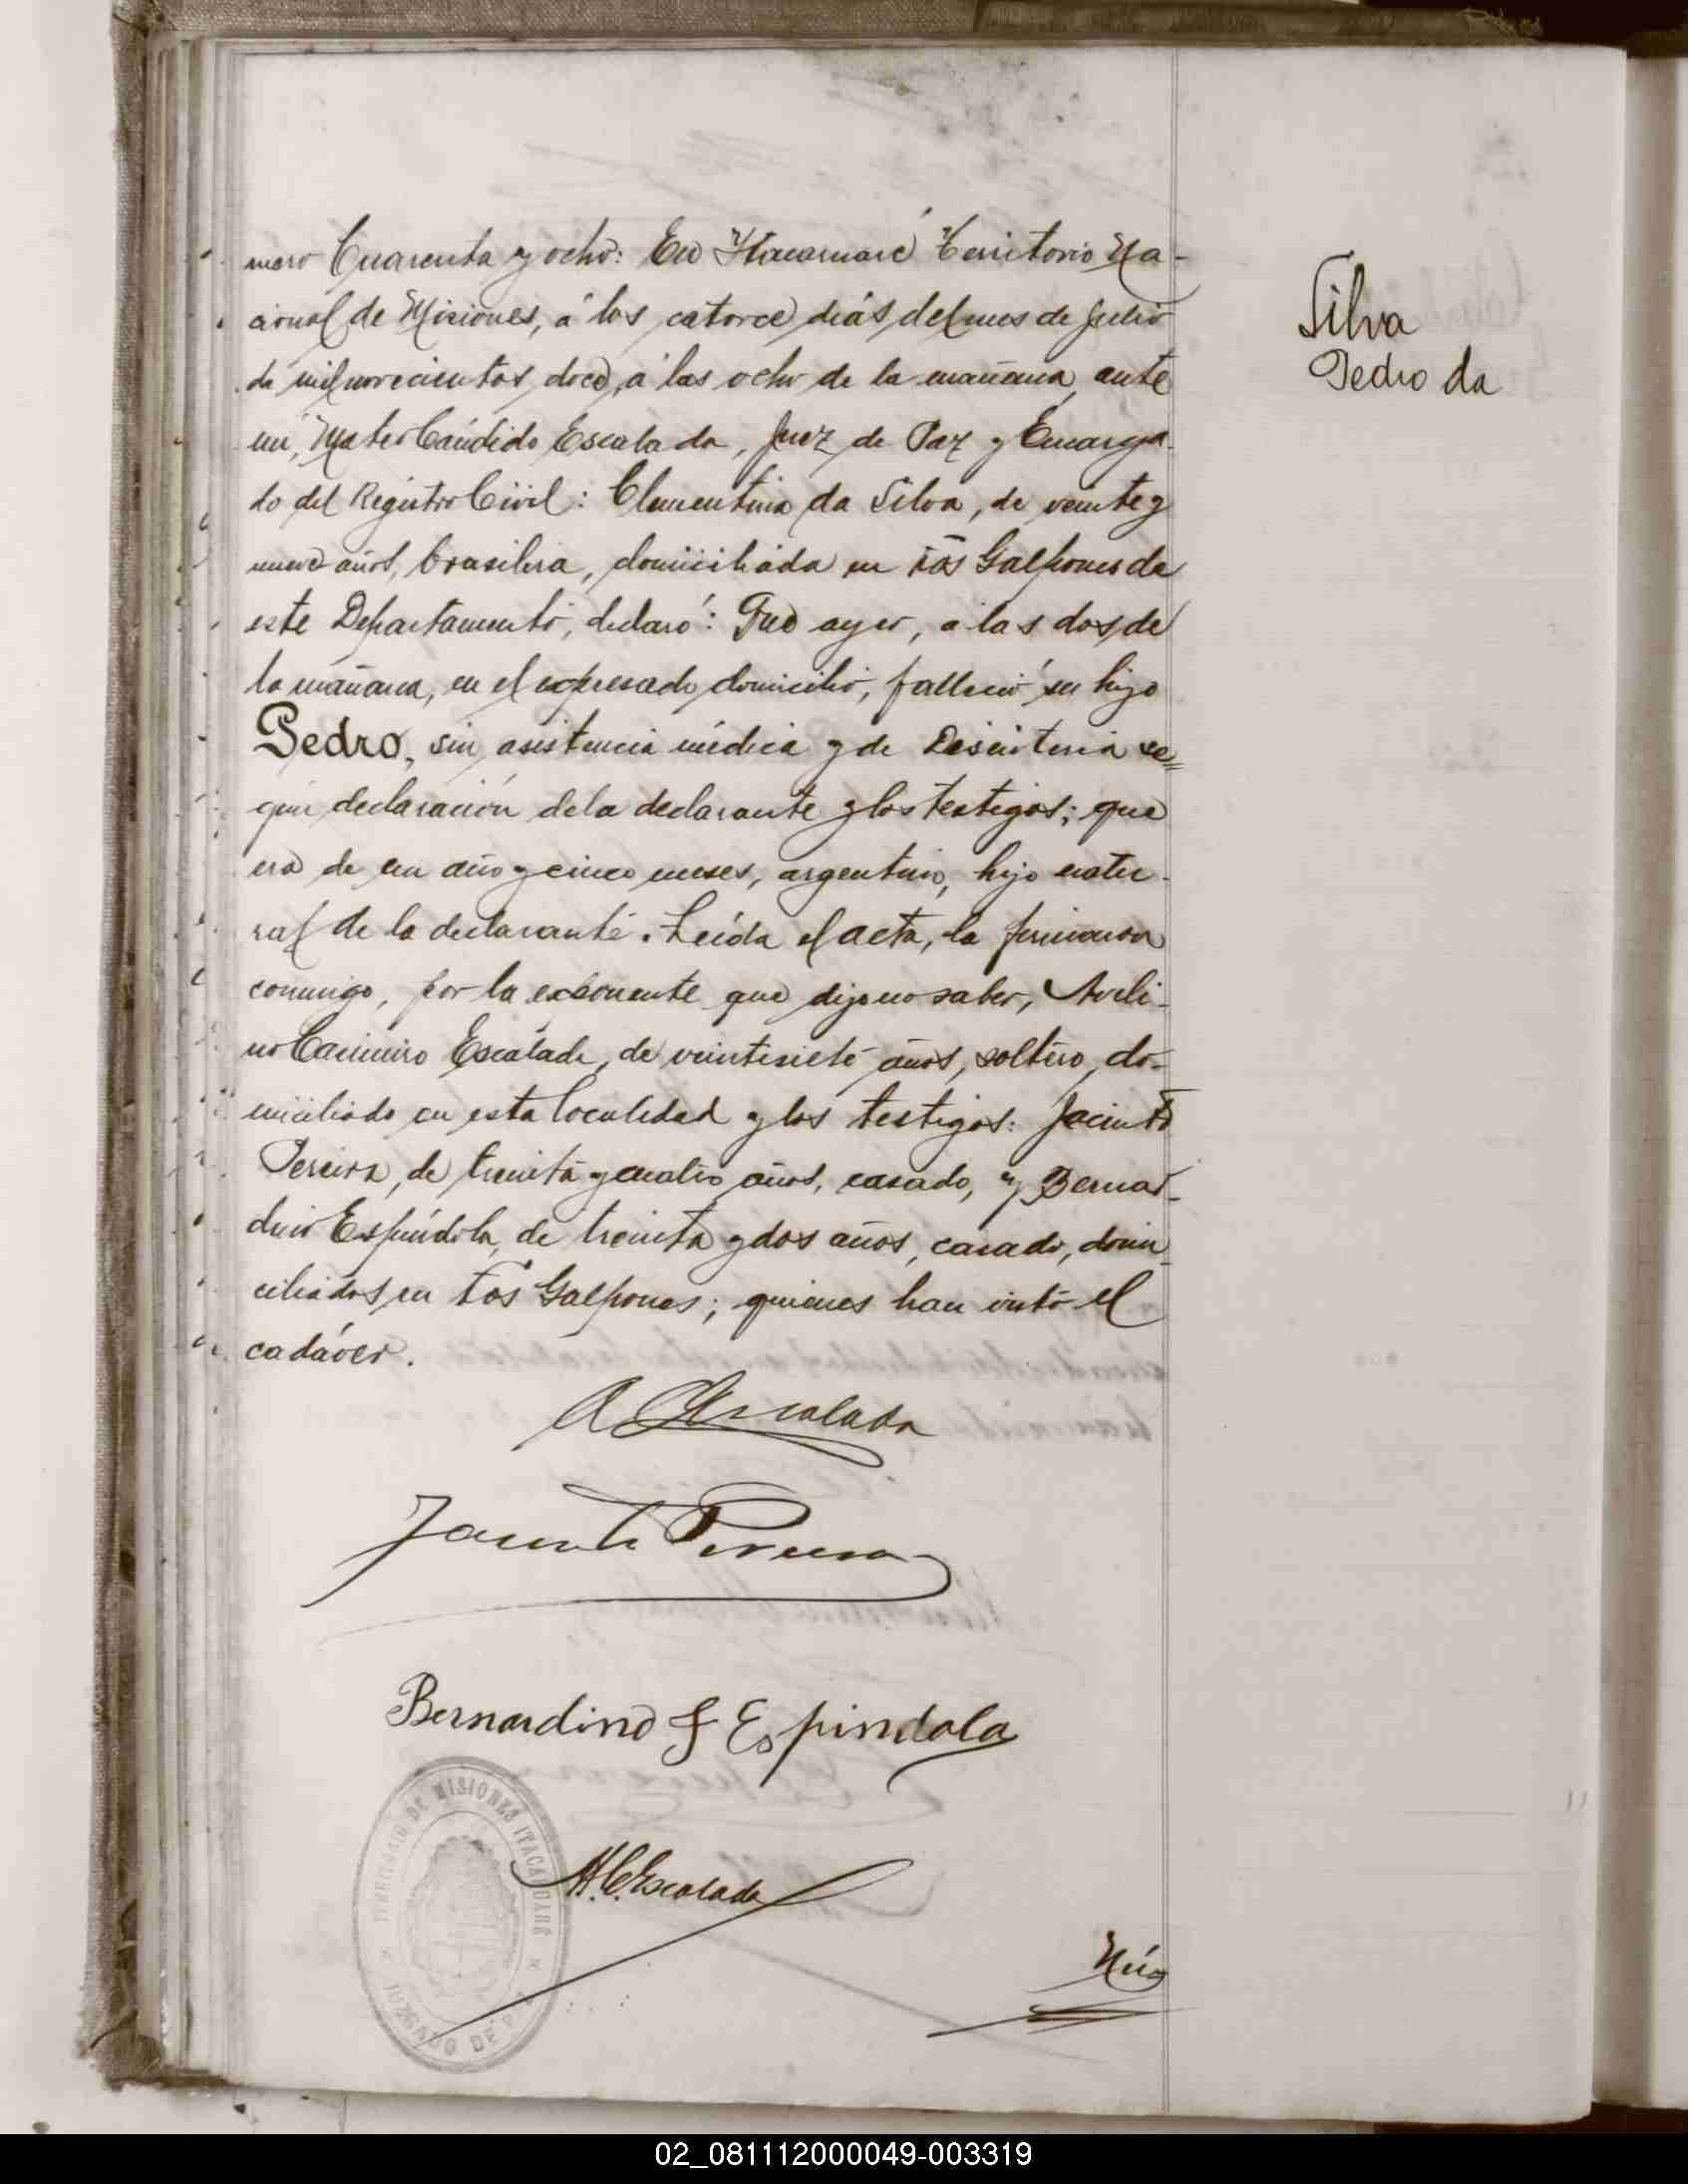 mero Cuarenta y ocho: En Itacaruaré Territorio Na-
cional de Misiones, á los catorce dias del mes de Julio
de mil novecientos doce, a las ocho de la mañana, ante
mi, Mateo Cándido Escalada, Juez de Paz y Encarga-
do del Registro Civil: Clementina da Silva, de veinte y
nueve años, brasilera, domiciliada en Tós Galpones de
este Departamento, declaró: Que ayer, a las dos de
la mañana, en el expresado domicilio, falleció su hijo
Pedro, sin asistencia médica y de Desinteria se=
gún declaración de la declarante y los testigos; que
era de un año y cinco meses, argentino, hijo natu-
ral de la declarante. Leída el acta, la firmaron
conmigo, por la exponente que dijo no saber, Aveli-
no Casimiro Escalada, de veintisiete años, soltero, do-
miciliado en esta localidad y los testigos: Jacinto
Pereira, de treinta y cuatro años, casado, y Bernar-
dino Espíndola, de treinta y dos años, casado, domi-
ciliados en Tos Galpones; quienes han visto el
cadáver.
Silva
Pedro da
A C Escalada
Jacinto Pereira
Bernardino Espindola
M. C. Escalada
TERRITORIO DE MISIONES ITACARUARÉ
JUZGADO DE PAZ
Nú
02_081112000049-003319